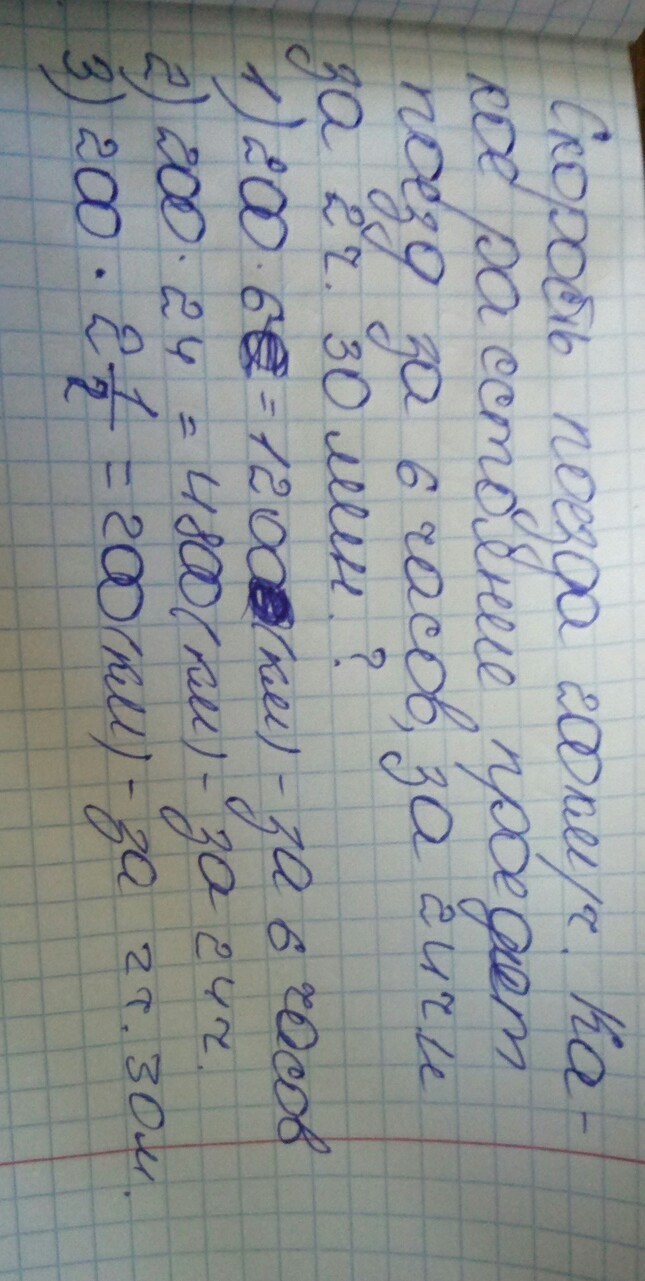 Скорость поезда 200км/ч. Ка-
кое расстояние проедет
поезд за 6 часов, за 24ч и
за 2ч. 30 мин.?
1) 200 · 6 = 1200 (км) - за 6 часов
2) 200 · 24 = 4800 (км) - за 24ч.
3) 200 · 2 1/2 = 200 (км) - за 2ч. 30м.